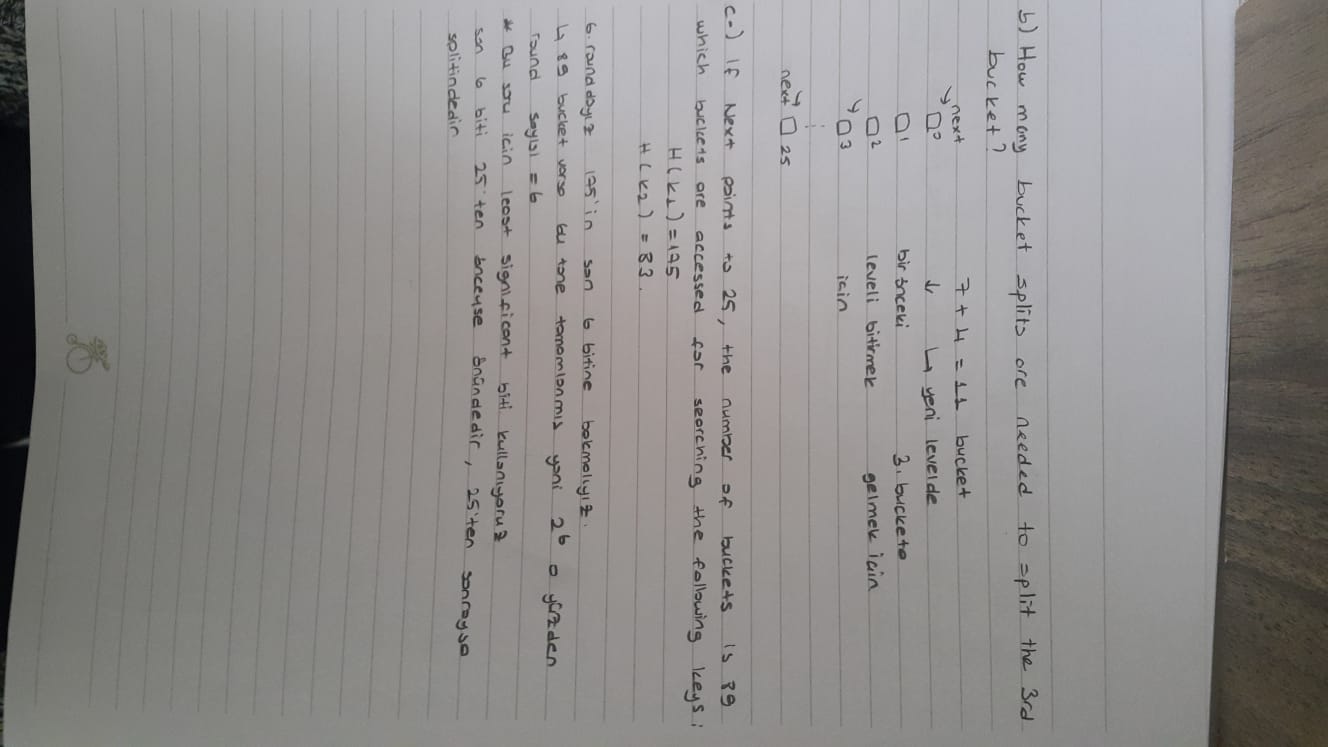 b) How many bucket splits are needed to split the 3rd
bucket?
next
0
1
2
3
next 25
7 + 4 = 11 bucket
↓ ↳ yeni levelde
bir önceki 3. bucketa
leveli bitirmek gelmek için
için
c-) If Next points to 25, the number of buckets is 89
which buckets are accessed for searching the following keys:
H(K1) = 175
H(K2) = 83.
6. rounddayız 175'in son 6 bitine bakmalıyız.
↳ 89 bucket varsa 64 tane tamamlanmış yani 2⁶ o yüzden
round sayısı = 6
* Bu soru için least significant biti kullanıyoruz
son 6 biti 25'ten önceyse önündedir, 25'ten sonraysa
splitindedir